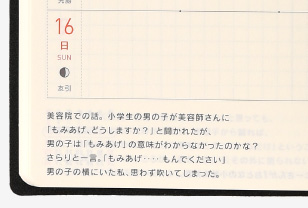 16
日
SUN
友引
美容院での話。小学生の男の子が美容師さんに
「もみあげ、どうしますか?」と聞かれたが、
男の子は「もみあげ」の意味がわからなかったのかな?
さらりと一言。「もみあげ‥‥もんでください」
男の子の横にいた私、思わず吹いてしまった。